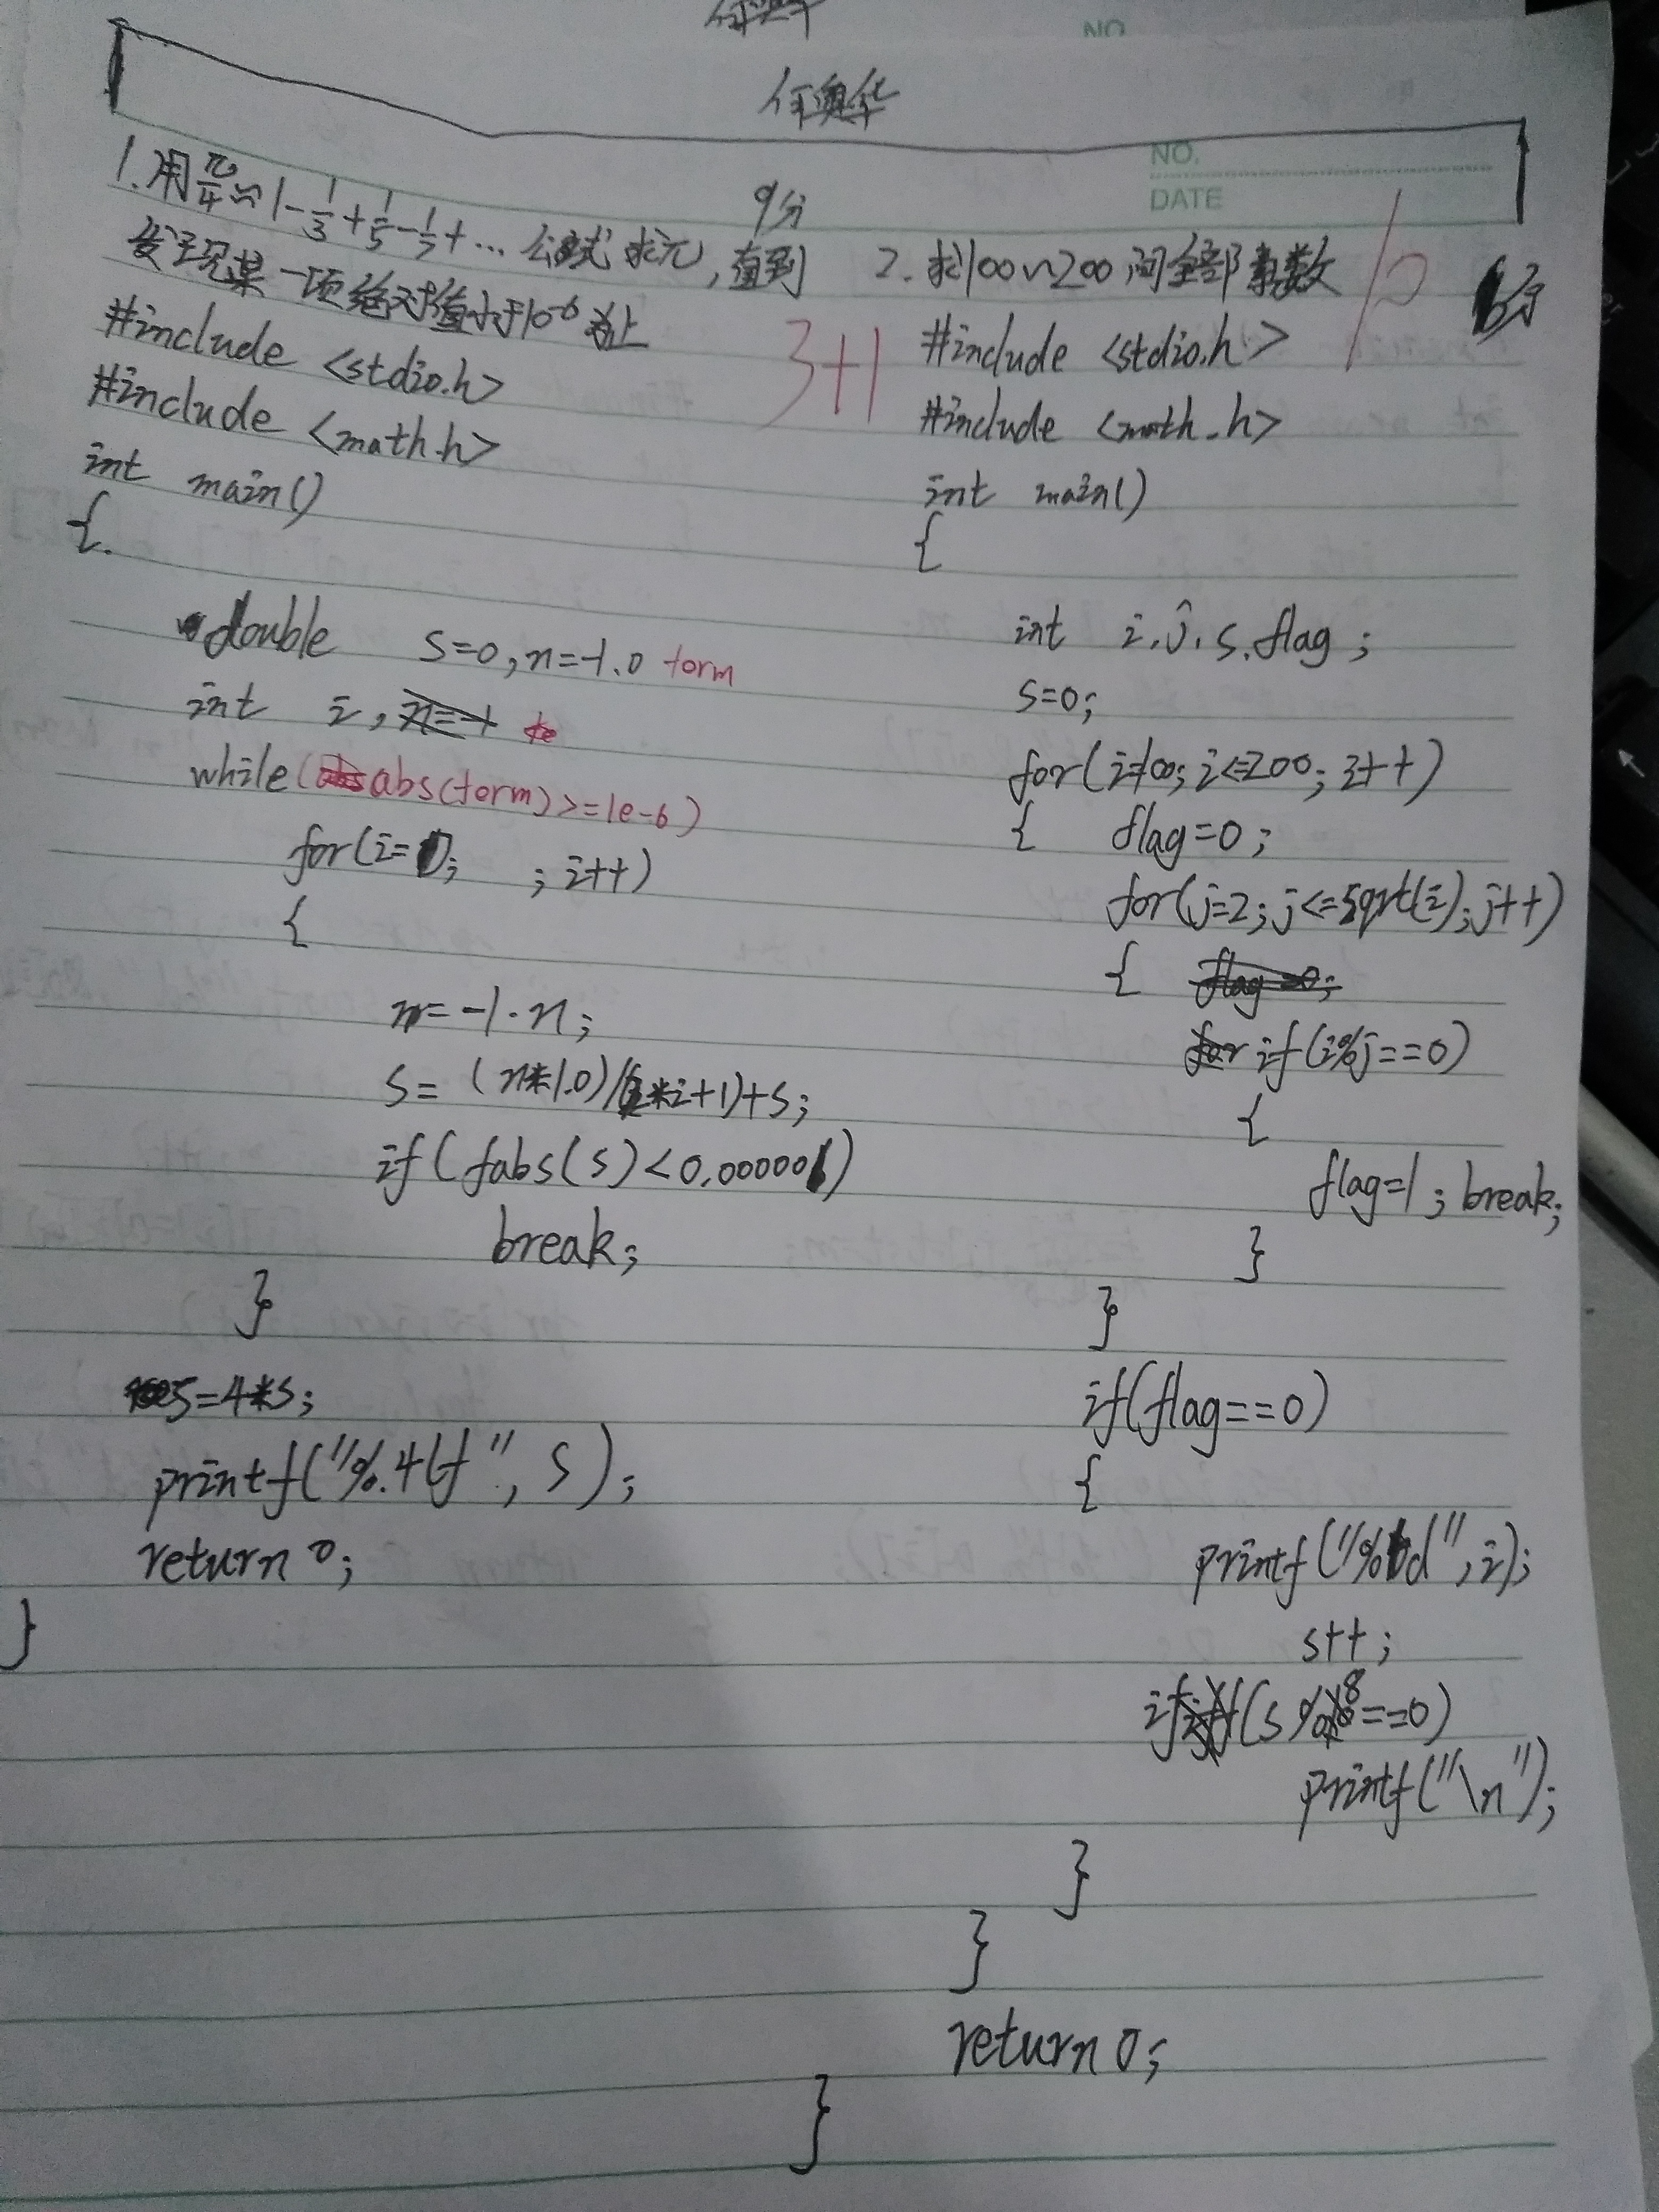 NO.
何奥华
NO.
DATE
1.用π/4≈1-1/3+1/5-1/7+...公式求π,直到
发现某一项绝对值小于10-6为止
9分
3+1
#include <stdio.h>
#include <math.h>
int main()
{
double s=0,n=-1.0 term
int i,n=-1
while(abs(term)>=1e-6)
for(i=0; ;i++)
{
n=-1·n;
s=(n*1.0)/(2*i+1)+s;
if(fabs(s)<0.000001)
break;
}
s=4*s;
printf("%.4lf",s);
return 0;
}
2.求100~200间全部素数
10
分
#include <stdio.h>
#include <math.h>
int main()
{
int i,j,s,flag;
s=0;
for(i=100;i<=200;i++)
{ flag=0;
for(j=2;j<=sqrt(i);j++)
{ flag=0;
for if(i%j==0)
{
flag=1;break;
}
}
if(flag==0)
{
printf("%d",i);
s++;
if(s%8==0)
printf("\n");
}
}
return 0;
}